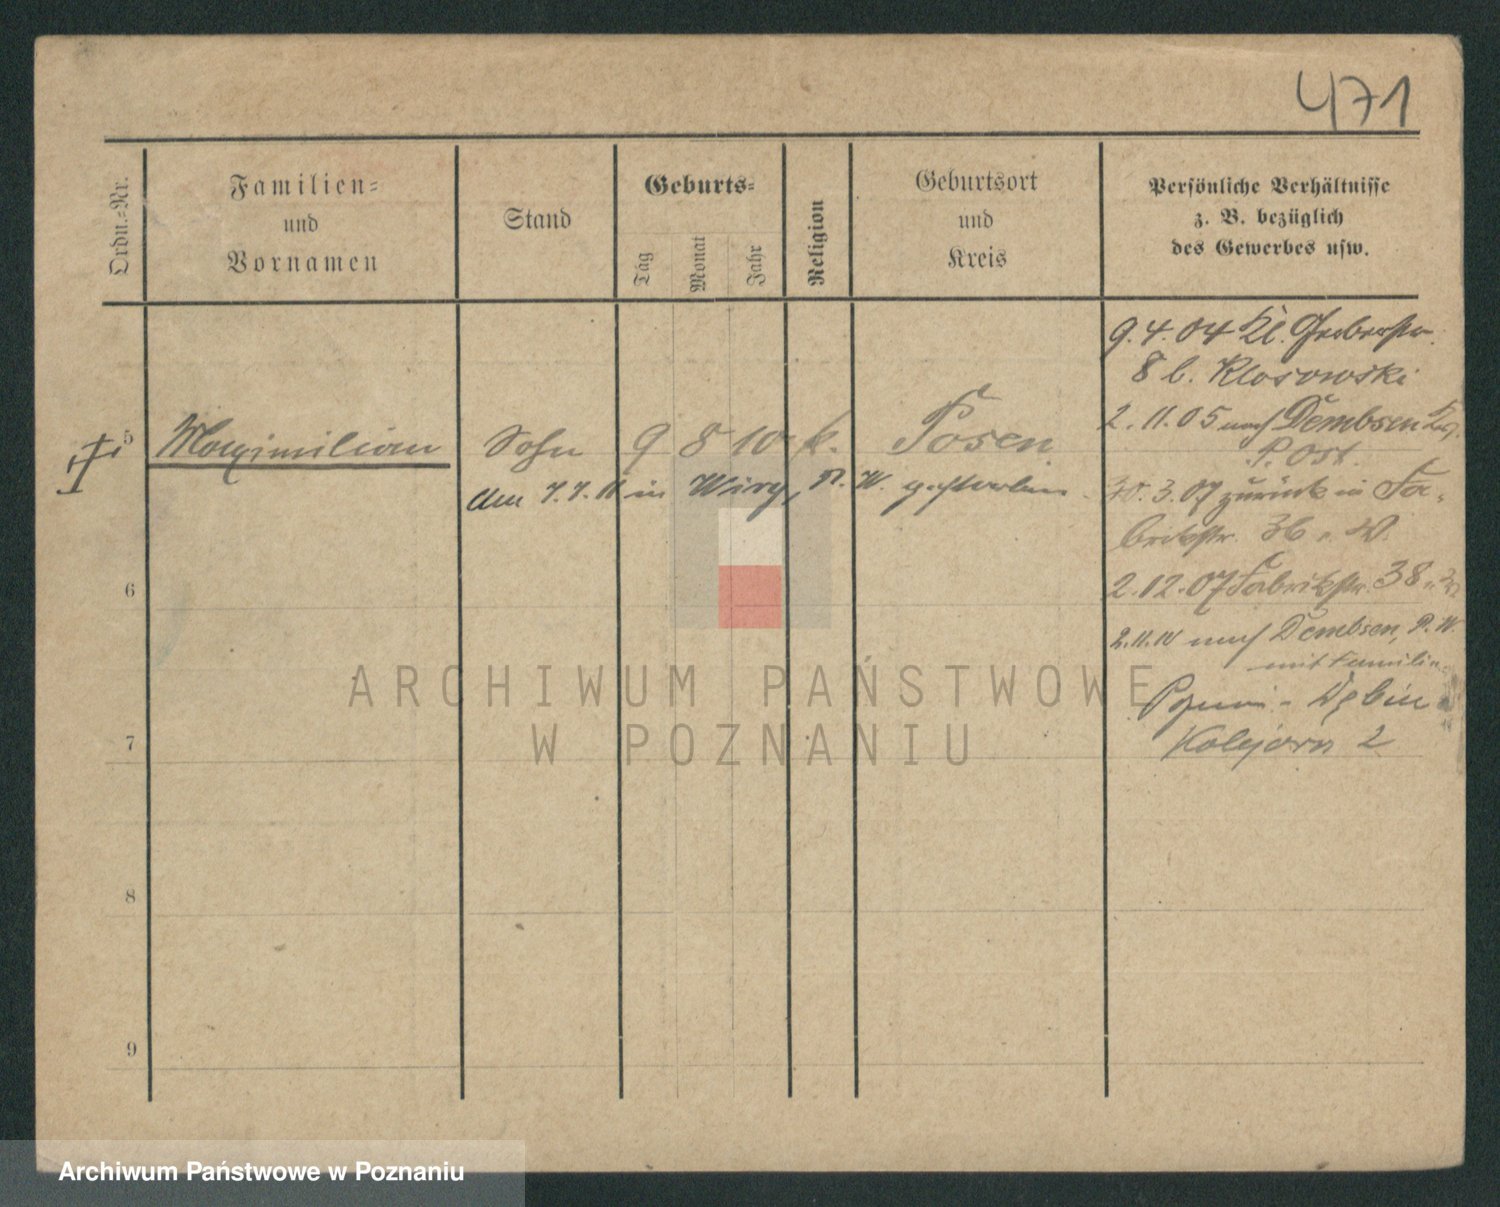 471
Ordn.-Nr.
Familien-
und
Vornamen
Stand
Geburts-
Tag
Monat
Jahr
Religion
Geburtsort
und
Kreis
Persönliche Verhältnisse
z. B. bezüglich
des Gewerbes usw.
5 Maximilian Sohn 9 8 10 k. Posen
am 7.7.11 in Wiry, P. W. gestorben
6
7
8
9
9.4.04 Kl. Gerberstr.
8 b. Klosowski
2.11.05 nach Dembsen
P. Ost.
30.3.07 zurück in Fa-
brikstr. 36
2.12.07 Fabrikstr. 38
2.11.10 nach Dembsen, P. W.
mit Familie
Dębin
2
ARCHIWUM PAŃSTWOWE
W POZNANIU
Archiwum Państwowe w Poznaniu